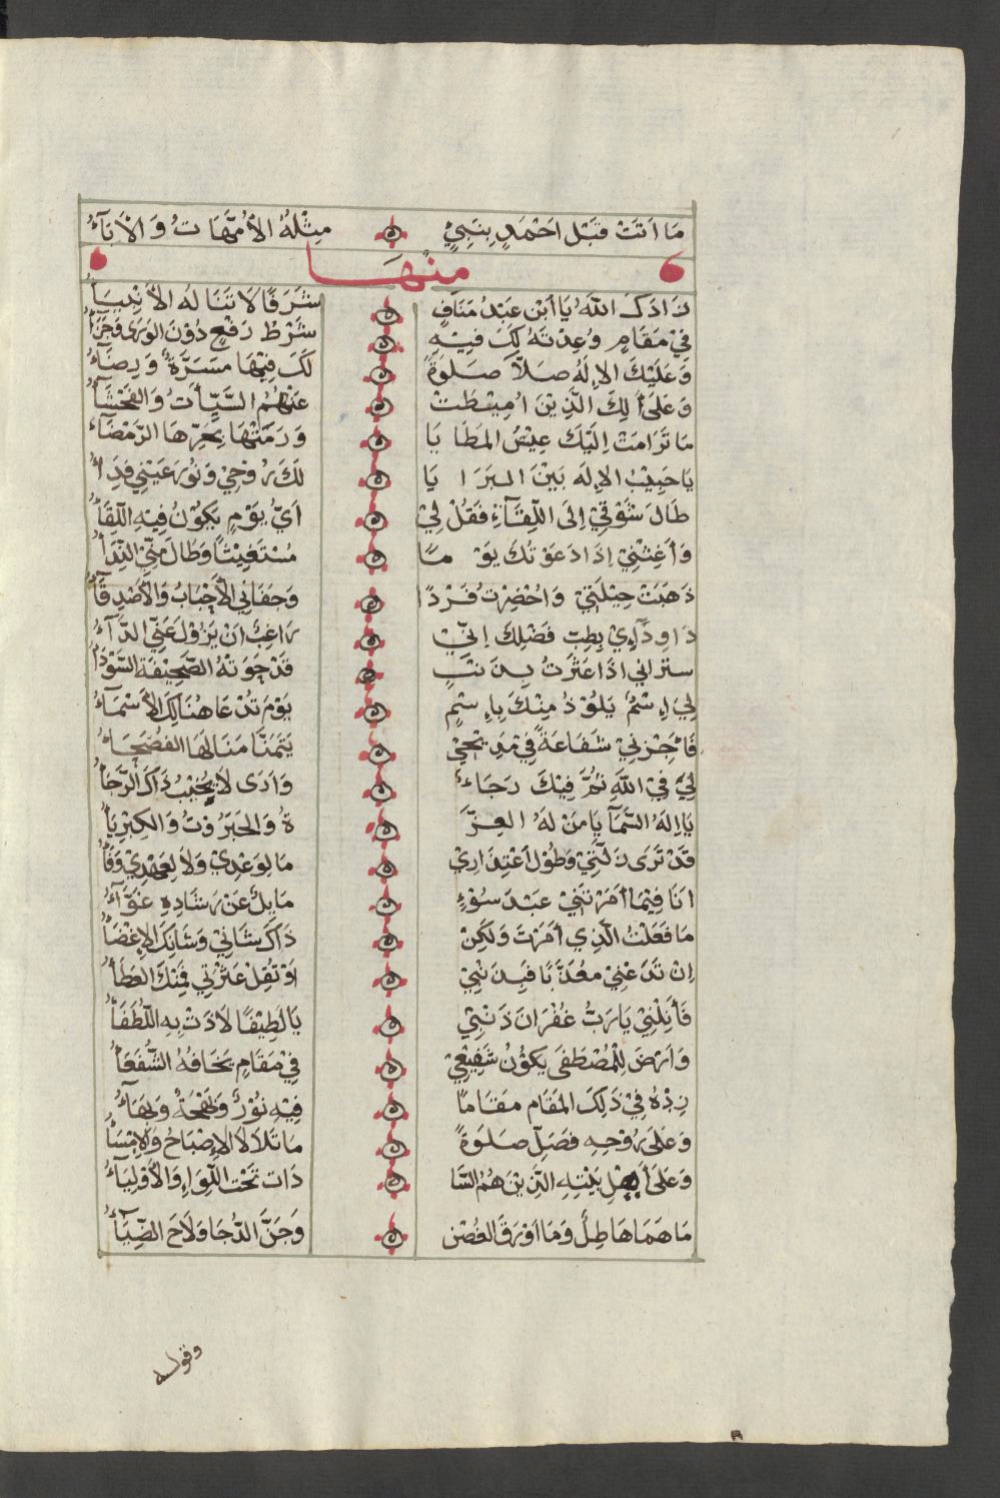 مَا اَتَتْ قَبْلَ اَحْمَدٍ بِنَبِيٍّ مِثْلَهُ الأُمَّهَاتُ وَالأَبَآءُ
مِنْهَا
زَادَكَ اللَّهُ يَا ابْنَ عَبْدِ مَنَافٍ شَرَفًا لَا تَنَالُهُ الأَنْبِيَآءُ
فِيْ مَقَامٍ وُعِدْتَهُ لَكَ فِيْهِ شَرْطُ رَفْعٍ دُوْنَ الوَرَى وَجَزَآءُ
وَعَلَيْكَ الإِلَهُ صَلَّا صَلَوةً لَكَ فِيْهَا مَسَرَّةٌ وَرِضَآءُ
وَعَلَى أٰلِكَ الَّذِيْنَ اُمِيْطَتْ عَنْهُمُ السَّيِّأَتُ وَالفَحْشَآءُ
مَا تَرَامَتْ اِلَيْكَ عِيْسُ المَطَايَا وَرَمَتْهَا بِحَرِّهَا الرَّمْضَآءُ
يَا حَبِيْبَ الإِلَهِ بَيْنَ البَرَايَا لَكَ رُوْحِيْ وَنُوْرُ عَيْنِيْ فِدَآءُ
طَالَ شَوْقِيْ اِلَى اللِّقَآءِ فَقُلْ لِيْ اَيُّ يَوْمٍ يَكُوْنُ فِيْهِ اللِّقَآءُ
وَأَغِثْنِيْ اِذَا دَعَوْتُكَ يَوْمًا مُسْتَغِيْثًا وَطَالَ مِنِّيْ النِّدَآءُ
ذَهَبَتْ حِيْلَتِيْ وَاُحْضِرْتُ فَرْدًا وَجَفَانِي الأَحْبَابُ وَالأَصْدِقَآءُ
دَاوِ دَآءِيْ بِطِبِّ فَضْلِكَ اِنِّيْ رَاغِبٌ اَنْ يَزُوْلَ عَنِّي الدَّآءُ
سترانى اذَا عَثَرْتُ بِذَنْبٍ قَدْ حَوَتْهُ الصَّحِيْفَةُ السَّوْدَآءُ
لِيَ اِسْمٌ يَلُوْذُ مِنْكَ بِاِسْمٍ يَوْمَ تُدْعَا هُنَالِكَ الأَسْمَآءُ
فَأَجِزْنِيْ شَفَاعَةً فِيْ مَدِيْحِيْ يَتَمَنَّا مَنَالَهَا الفُصَحَآءُ
لِيَ فِي اللَّهِ ثُمَّ فِيْكَ رَجَاءٌ وَارَى لَا يَخِيْبُ ذَاكَ الرَّجَآءُ
يَا اِلَهَ السَّمَآ يَا مَنْ لَهُ العِزَّ ةُ وَالجَبَرُوْتُ وَالكِبْرِيَآءُ
قَدْ تَرَى زَلَّتِيْ وَطُوْلَ اعْتِذَارِيْ مَا لِوَعْدِيْ وَلَا لِعَهْدِيْ وَفَآءُ
اَنَا فِيْمَا أَمَرْتَنِيْ عَبْدُ سُوْءٍ مَايِلٌ عَنْ رَشَادِهِ غَوَّآءُ
مَا فَعَلْتُ الَّذِي أَمَرْتَ وَلَكِنْ ذَاكَ شَانِيْ وَشَانُكَ الإِغْضَآءُ
اِنْ تَدَعْنِيْ مُعَذَّبًا فَبِذَنْبِيْ اَوْ تُقِلْ عَثْرَتِي فَمِنْكَ العَطَآءُ
فَأَنِلْنِيْ يَا رَبُّ غُفْرَانَ ذَنْبِيْ يَا لَطِيْفًا لَاذَتْ بِهِ اللُّطَفَآءُ
وَارْضَ لِلْمُصْطَفَى يَكُوْنُ شَفِيْعِيْ فِيْ مَقَامٍ يَخَافُهُ الشُّفَعَآءُ
زِدْهُ فِيْ ذَلِكَ المَقَامِ مَقَامًا فِيْهِ نُوْرٌ وَبَهْجَةٌ وَبَهَآءُ
وَعَلَى رُوْحِهِ فَصَلِّ صَلَوةً مَا تَلَالَا الإِصْبَاحُ وَالإِمْسَآءُ
وَعَلَى أَهْلِ بَيْتِهِ الَّذِيْنَ هُمُ السَّا دَات تَحْتَ اللِّوَاءِ وَالأَوْلِيَآءُ
مَا هَمَا هَاطِلٌ وَمَا اَوْرَقَ الغُصْنُ وَجَنَّ الدُّجَا وَلَاحَ الضِّيَآءُ
وقوله